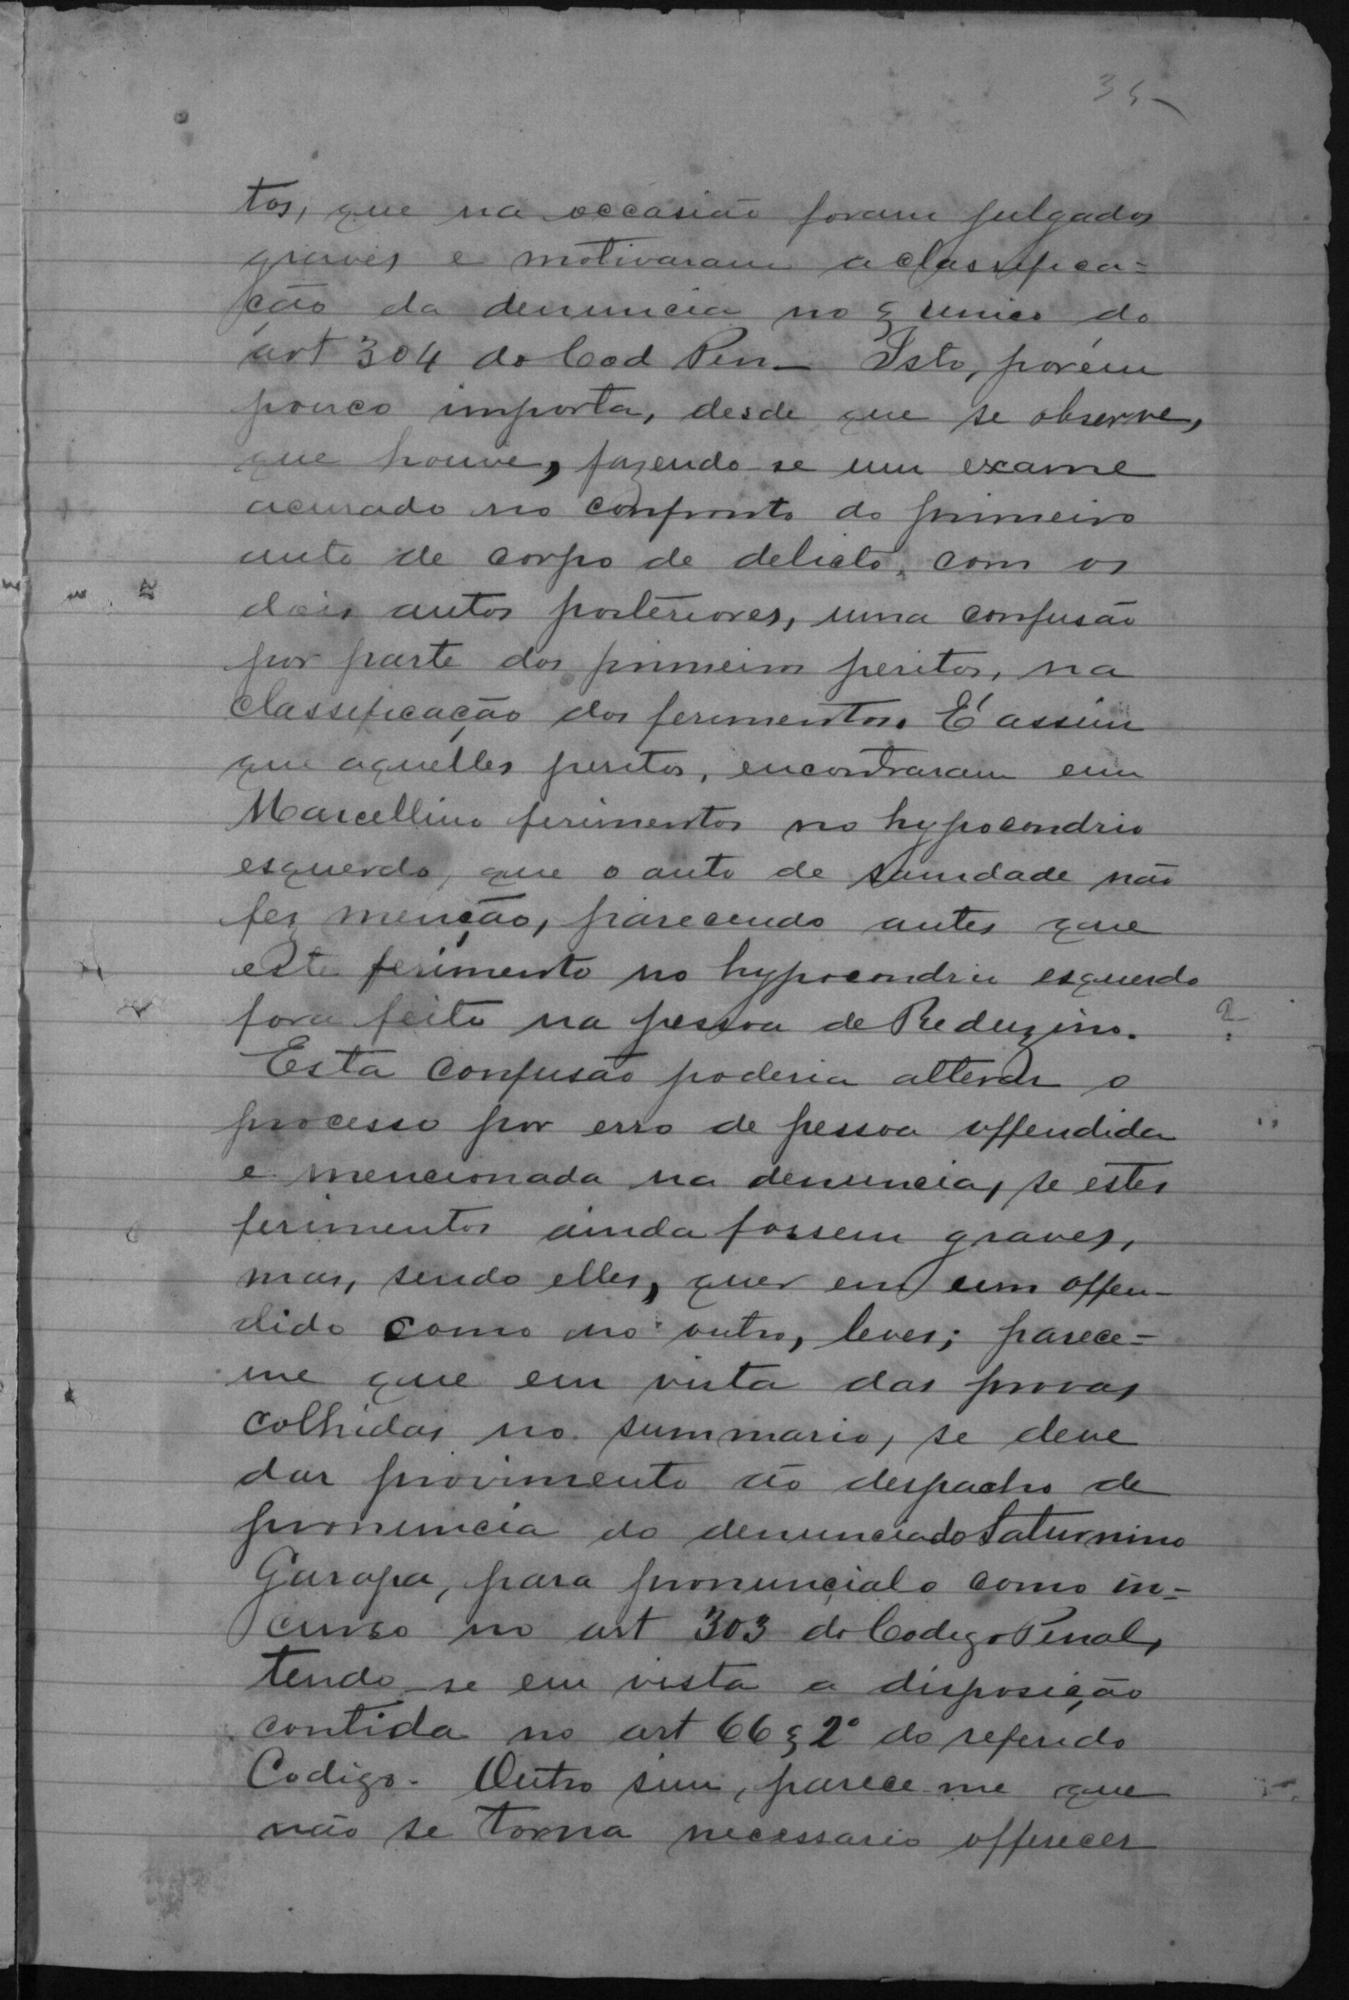 35
tos, que na occasião foram julgados
graves e motivaram a classifica=
ção da denuncia no § unico do
art 304 do Cod Pen_ Isto, porém
pouco importa, desde que se observe,
que houve, fazendo-se um exame
acurado no confronto do primeiro
auto de corpo de delicto, com os
dois autos posteriores, uma confusão
por parte dos primeiros peritos, na
classificação dos ferimentos. É assim
que aquelles peritos, encontraram em
Marcellino ferimentos no hypocondrio
esquerdo, que o auto de sanidade não
fez menção, parecendo antes que
este ferimento no hypocondrio esquerdo
fora feito na pessoa de Reduzino. ?
Esta confusão poderia alterar o
processo por erro de pessoa offendida
e mencionada na denuncia, se estes
ferimentos ainda fossem graves,
mas, sendo elles, quer em um offen-
dido como no outro, leves; parece=
me que em vista das provas
colhidas no summario, se deve
dar provimento ao despacho de
pronuncia do denunciado Saturnino
Garapa, para pronuncialo como in=
curso no art 303 do Codigo Penal,
tendo-se em vista a disposição
contida no art 66 § 2º do referido
Codigo. Outro sim, parece me que
não se torna necessario offerecer